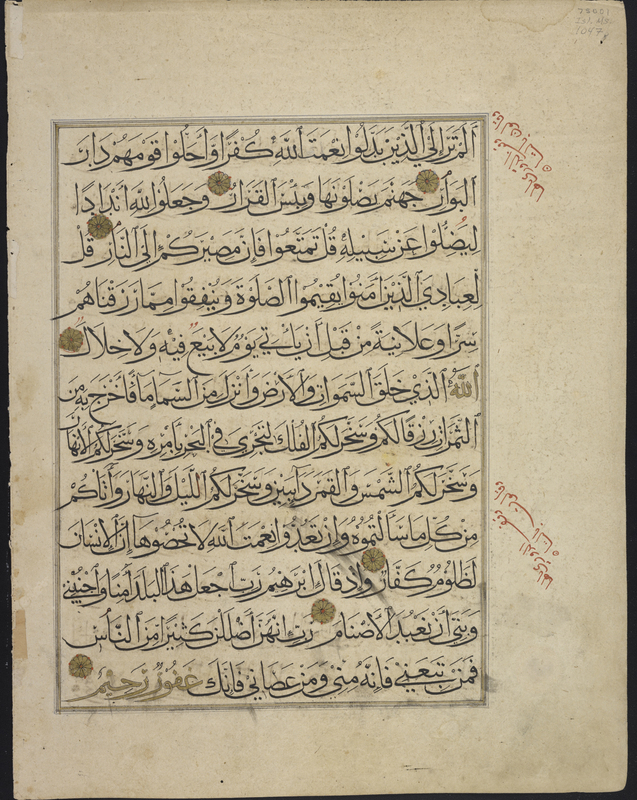 75001
Isl. Ms.
1047
أَلَمْ تَرَ إِلَى ٱلَّذِينَ بَدَّلُوا نِعْمَتَ ٱللَّهِ كُفْرًا وَأَحَلُّوا قَوْمَهُمْ دَارَ
ٱلْبَوَارِ جَهَنَّمَ يَصْلَوْنَهَا وَبِئْسَ ٱلْقَرَارُ وَجَعَلُوا لِلَّهِ أَنْدَادًا
لِيُضِلُّوا عَنْ سَبِيلِهِ قُلْ تَمَتَّعُوا فَإِنَّ مَصِيرَكُمْ إِلَى ٱلنَّارِ قُلْ
لِعِبَادِيَ ٱلَّذِينَ آمَنُوا يُقِيمُوا ٱلصَّلٰوةَ وَيُنْفِقُوا مِمَّا رَزَقْنَاهُمْ
سِرًّا وَعَلَانِيَةً مِنْ قَبْلِ أَنْ يَأْتِيَ يَوْمٌ لَا بَيْعٌ فِيهِ وَلَا خِلَالٌ
ٱللَّهُ ٱلَّذِي خَلَقَ ٱلسَّمٰوَاتِ وَٱلْأَرْضَ وَأَنْزَلَ مِنَ ٱلسَّمَاءِ مَاءً فَأَخْرَجَ بِهِ مِنَ
ٱلثَّمَرَاتِ رِزْقًا لَكُمْ وَسَخَّرَ لَكُمُ ٱلْفُلْكَ لِتَجْرِيَ فِي ٱلْبَحْرِ بِأَمْرِهِ وَسَخَّرَ لَكُمُ ٱلْأَنْهَارَ
وَسَخَّرَ لَكُمُ ٱلشَّمْسَ وَٱلْقَمَرَ دَائِبَيْنِ وَسَخَّرَ لَكُمُ ٱللَّيْلَ وَٱلنَّهَارَ وَآتَاكُمْ
مِنْ كُلِّ مَا سَأَلْتُمُوهُ وَإِنْ تَعُدُّوا نِعْمَتَ ٱللَّهِ لَا تُحْصُوهَا إِنَّ ٱلْإِنْسَانَ
لَظَلُومٌ كَفَّارٌ وَإِذْ قَالَ إِبْرَهِيمُ رَبِّ ٱجْعَلْ هَذَا ٱلْبَلَدَ آمِنًا وَٱجْنُبْنِي
وَبَنِيَّ أَنْ نَعْبُدَ ٱلْأَصْنَامَ رَبِّ إِنَّهُنَّ أَضْلَلْنَ كَثِيرًا مِنَ ٱلنَّاسِ
فَمَنْ تَبِعَنِي فَإِنَّهُ مِنِّي وَمَنْ عَصَانِي فَإِنَّكَ غَفُورٌ رَحِيمٌ